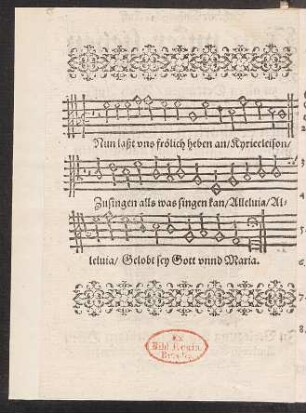 Nun laßt vns frölich heben an/Kyrieeleison/
Zusingen alls was singen kan/Alleluia/Al-
leluia/ Gelobt sey Gott vnnd Maria.
Ex
Bibl. Regia
3
4
5
6.
7.
8.